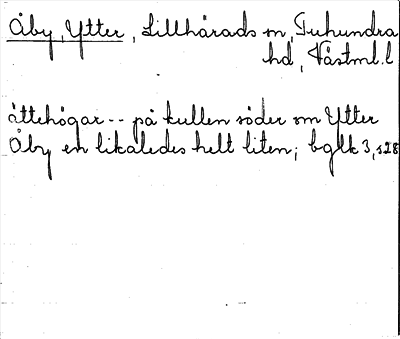 Åby, Ytter, Lillhårads sn, Tuhundra
hd, Västml. l
ättehögar -- på kullen söder om Ytter
Åby en likaledes helt liten; bglk 3, s. 28